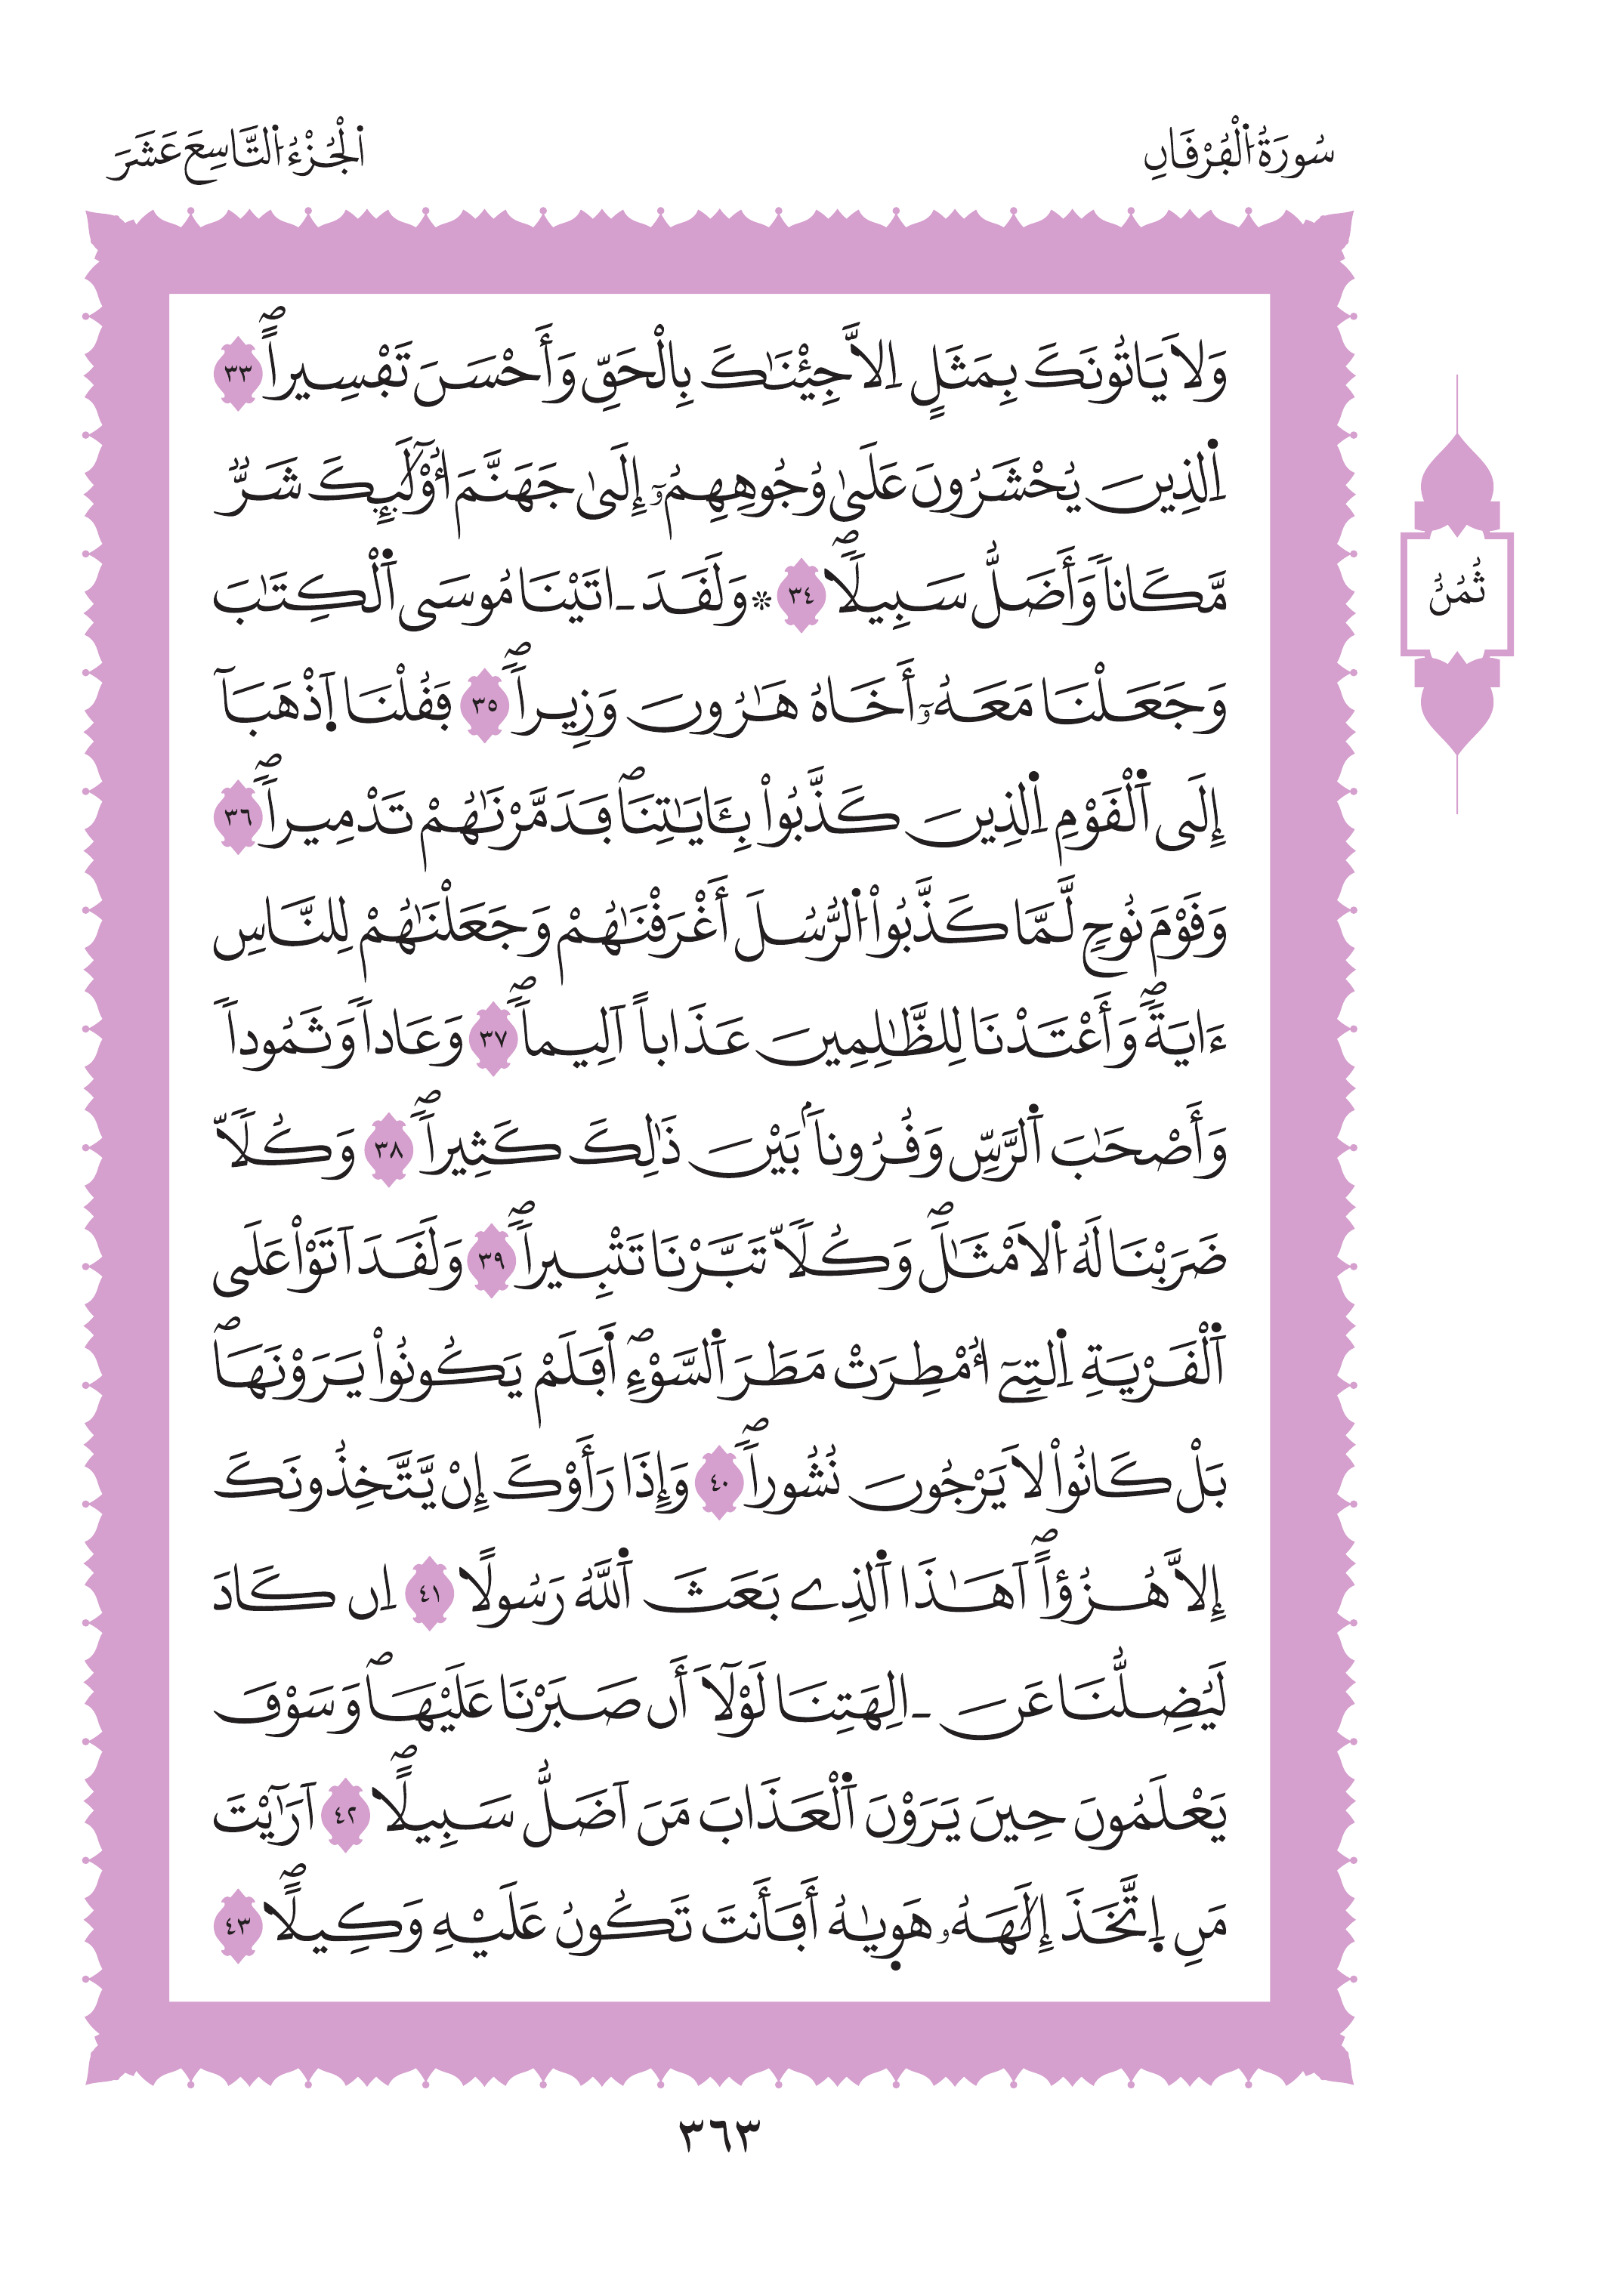 سُورَةُ اُ۬لْفُرْقَانِ
اَ۬لْجُزْءُ اُ۬لتَّاسِعَ عَشَرَ
وَلَا يَاتُونَكَ بِمَثَلٍ اِلَّا جِئْنَٰكَ بِالْحَقِّ وَأَحْسَنَ تَفْسِيراًۖ ٣٣
اِ۬لذِينَ يُحْشَرُونَ عَلَىٰ وُجُوهِهِمُۥٓ إِلَىٰ جَهَنَّمَ أُوْلَٰٓئِكَ شَرّٞ
مَّكَاناٗ وَأَضَلُّ سَبِيلاٗۖ ٣٤ ۞ وَلَقَدَ ـ اتَيْنَا مُوسَى اَ۬لْكِتَٰبَ
وَجَعَلْنَا مَعَهُۥٓ أَخَاهُ هَٰرُونَ وَزِيراٗۖ ٣٥ فَقُلْنَا اَ۪ذْهَبَآ
إِلَى اَ۬لْقَوْمِ اِ۬لذِينَ كَذَّبُواْ بِـَٔايَٰتِنَاۖ فَدَمَّرْنَٰهُمْ تَدْمِيراٗۖ ٣٦
وَقَوْمَ نُوحٍ لَّمَّا كَذَّبُواْ اُ۬لرُّسُلَ أَغْرَقْنَٰهُمْ وَجَعَلْنَٰهُمْ لِلنَّاسِ
ءَايَةٗۖ وَأَعْتَدْنَا لِلظَّٰلِمِينَ عَذَاباً اَلِيماٗۖ ٣٧ وَعَاداٗ وَثَمُوداٗ
وَأَصْحَٰبَ اَ۬لرَّسِّ وَقُرُوناَۢ بَيْنَ ذَٰلِكَ كَثِيراٗۖ ٣٨ وَكُلّاٗ
ضَرَبْنَا لَهُ اُ۬لَامْثَٰلَۖ وَكُلّاٗ تَبَّرْنَا تَتْبِيراٗۖ ٣٩ وَلَقَدَ اَتَوْاْ عَلَى
اَ۬لْقَرْيَةِ اِ۬لتِےٓ أُمْطِرَتْ مَطَرَ اَ۬لسَّوْءِۖ اَ۬فَلَمْ يَكُونُواْ يَرَوْنَهَاۖ
بَلْ كَانُواْ لَا يَرْجُونَ نُشُوراٗۖ ٤٠ وَإِذَا رَأَوْكَ إِنْ يَّتَّخِذُونَكَ
إِلَّا هُزُؤاًۖ اَهَٰذَا اَ۬لذِے بَعَثَ اَ۬للَّهُ رَسُولاً ٤١ اِن كَادَ
لَيُضِلُّنَا عَنَ ـ الِهَتِنَا لَوْلَآ أَن صَبَرْنَا عَلَيْهَاۖ وَسَوْفَ
يَعْلَمُونَ حِينَ يَرَوْنَ اَ۬لْعَذَابَ مَنَ اَضَلُّ سَبِيلاًۖ ٤٢ اَرَٰٓيْتَ
مَنِ اِ۪تَّخَذَ إِلَٰهَهُۥ هَو۪يٰهُ أَفَأَنتَ تَكُونُ عَلَيْهِ وَكِيلاًۖ ٤٣
ثُمُنُ
٣٦٣